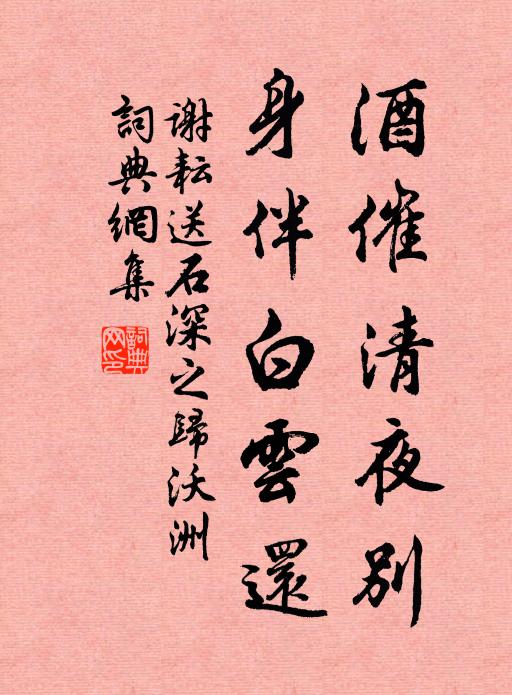 酒催清夜別
身伴白雲還
謝耘送石深之歸沃洲
詞典網集
詞典網印